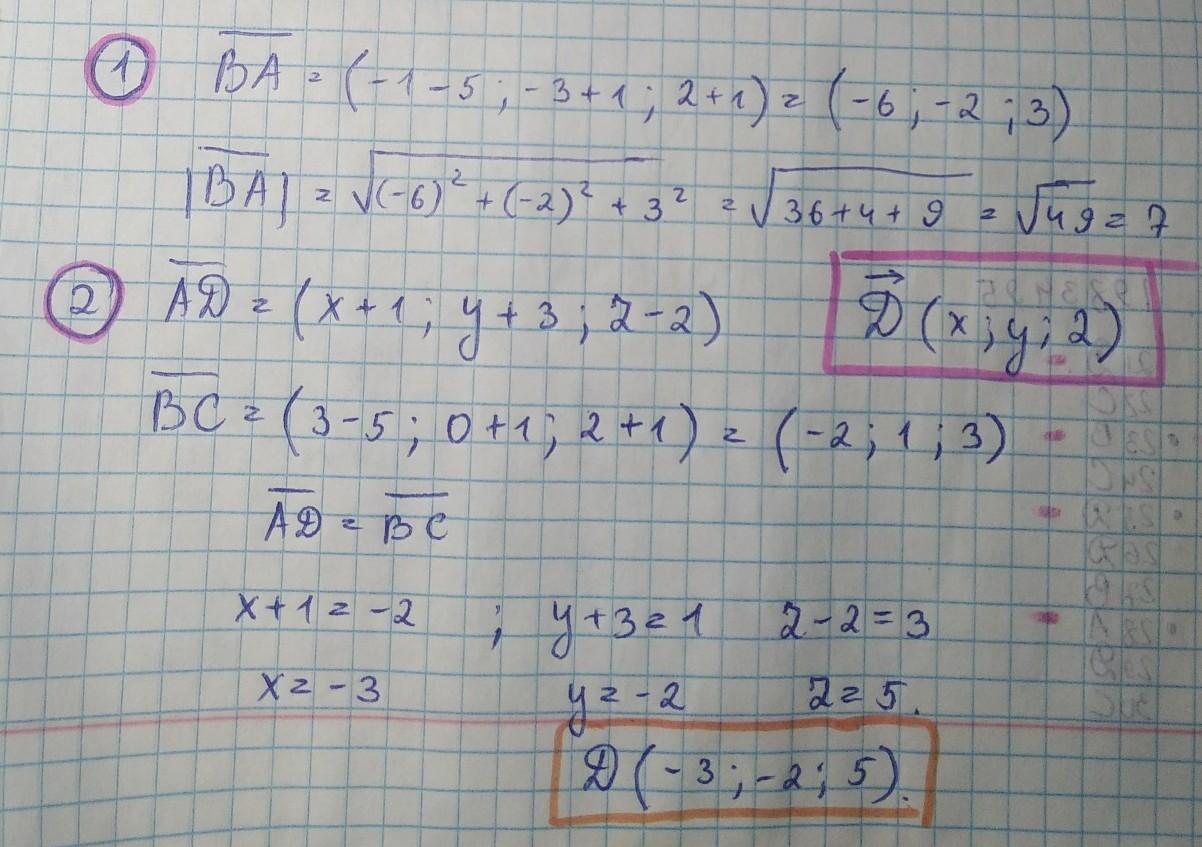 ① B̅A̅ = (-1-5 ; -3+1 ; 2+1) = (-6 ; -2 ; 3)
|B̅A̅| = √(-6)² + (-2)² + 3² = √36+4+9 = √49 = 7
② A̅D̅ = (x+1 ; y+3 ; z-2)
D⃗ (x ; y ; z)
B̅C̅ = (3-5 ; 0+1 ; 2+1) = (-2 ; 1 ; 3)
A̅D̅ = B̅C̅
x+1 = -2 ; y+3 = 1 z-2 = 3
x = -3 y = -2 z = 5.
D (-3 ; -2 ; 5).